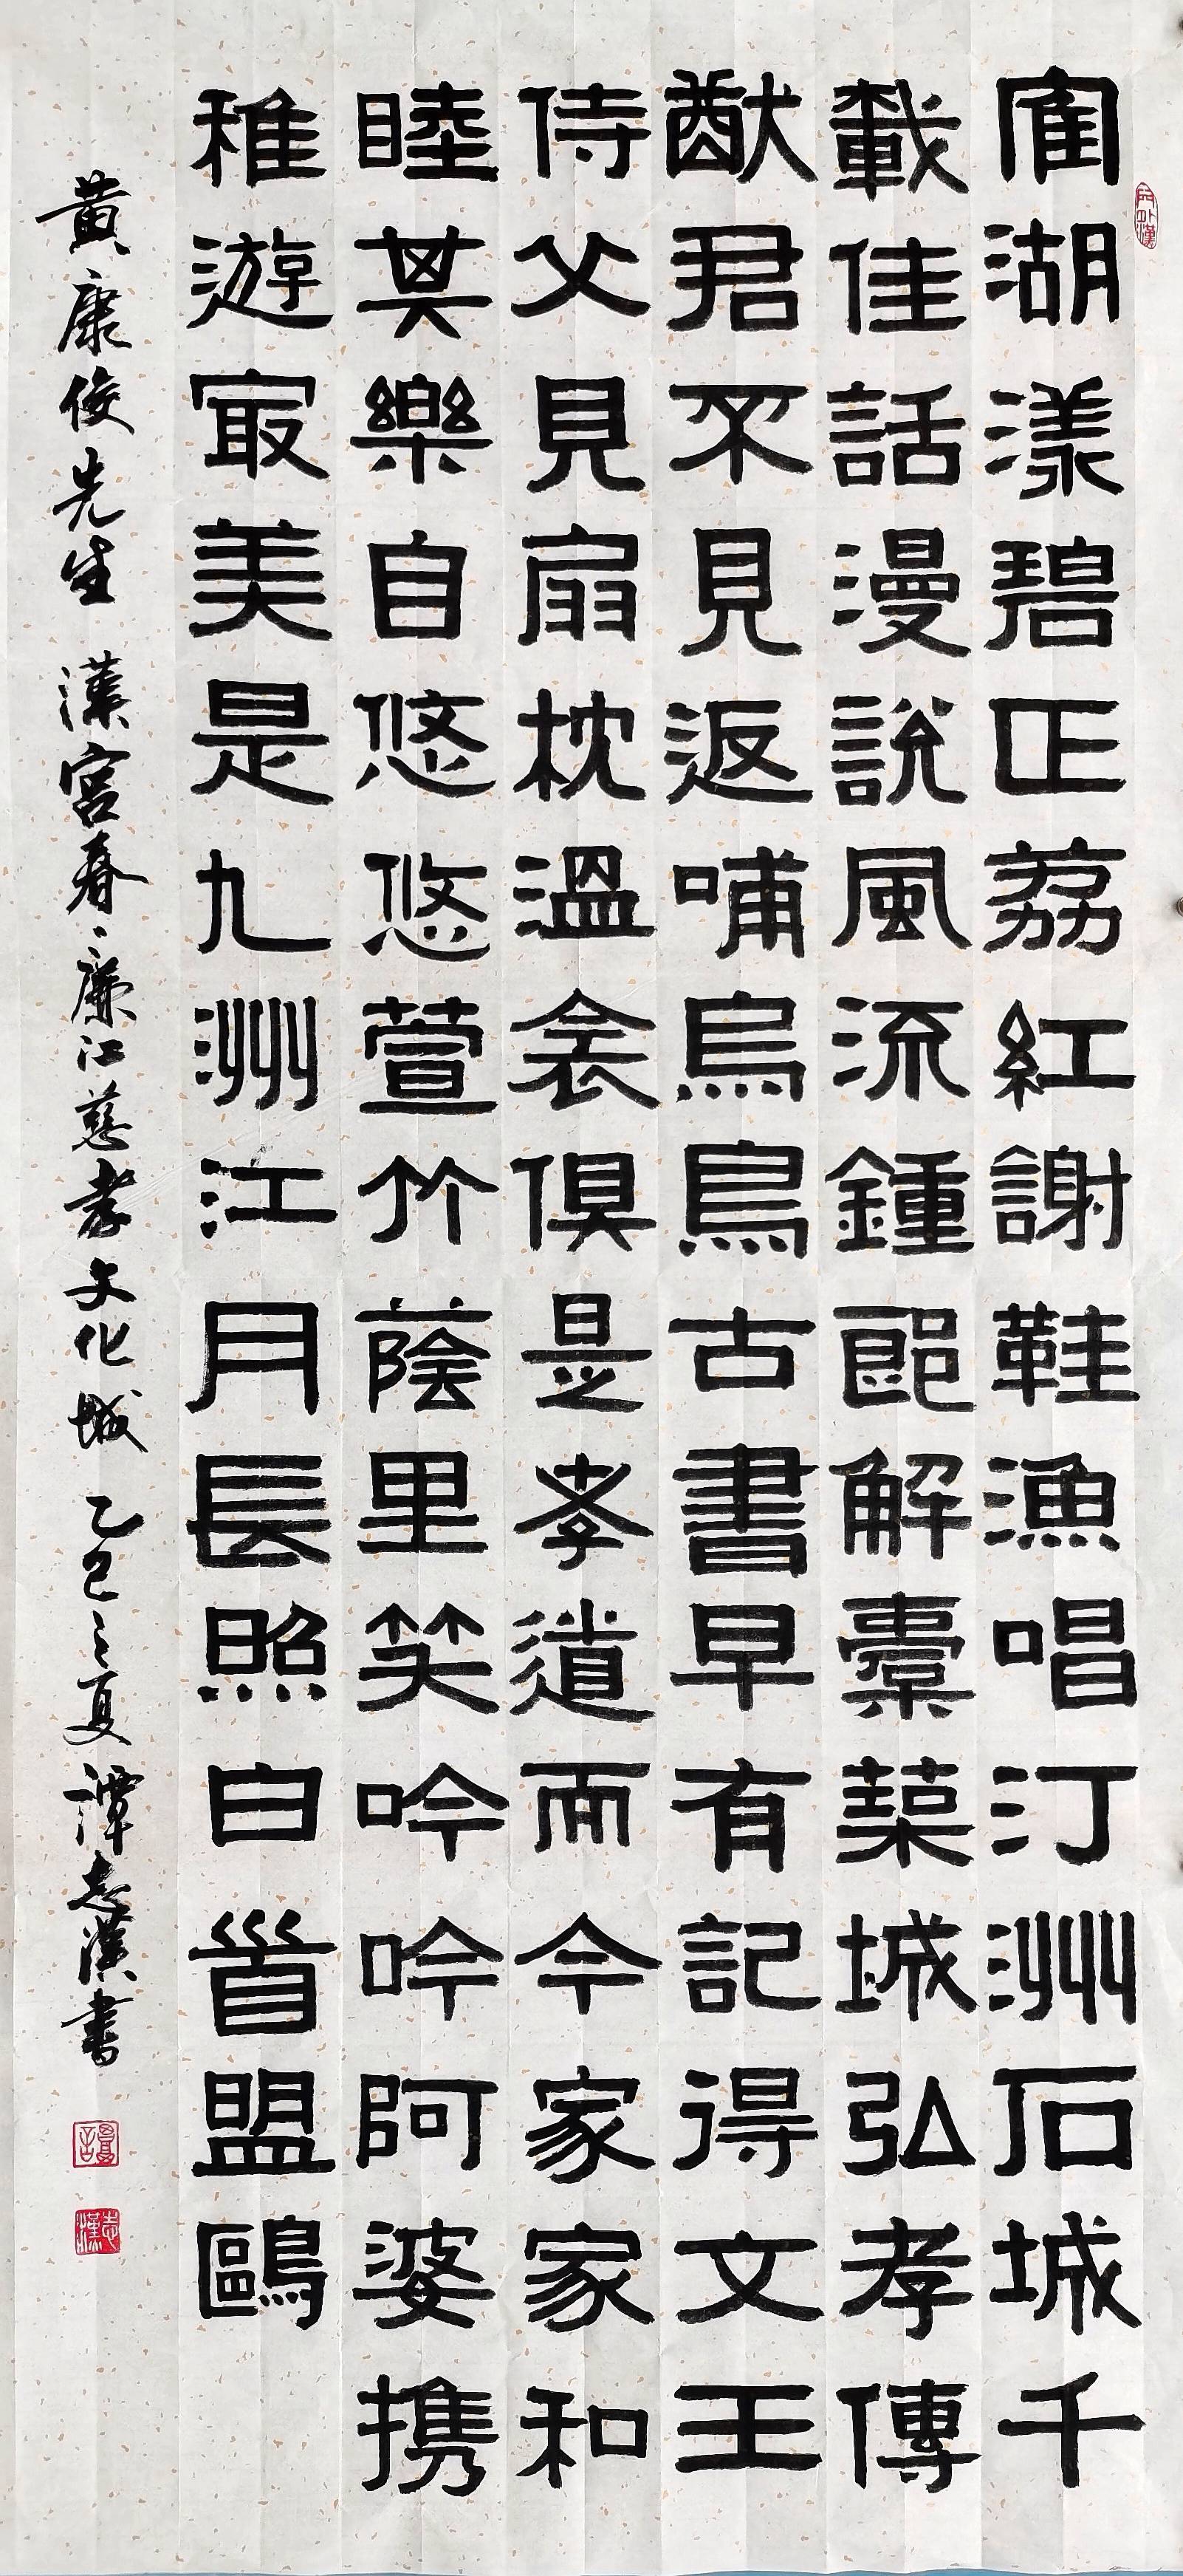 寉湖漾碧正荔紅謝鞋漁唱汀洲石城千
載佳話漫說風流鍾郎解橐築城弘孝傳
猷君不見返哺烏鳥古書早有記得文王
侍父見扇枕溫衾俱是孝道而今家家和
睦其樂自悠悠萱竹蔭里笑吟吟阿婆携
稚遊最美是九洲江月長照白首盟鷗
黃康俊先生 漢宮春·廉江慈孝文化城 乙巳之夏 譚志漢書
志漢